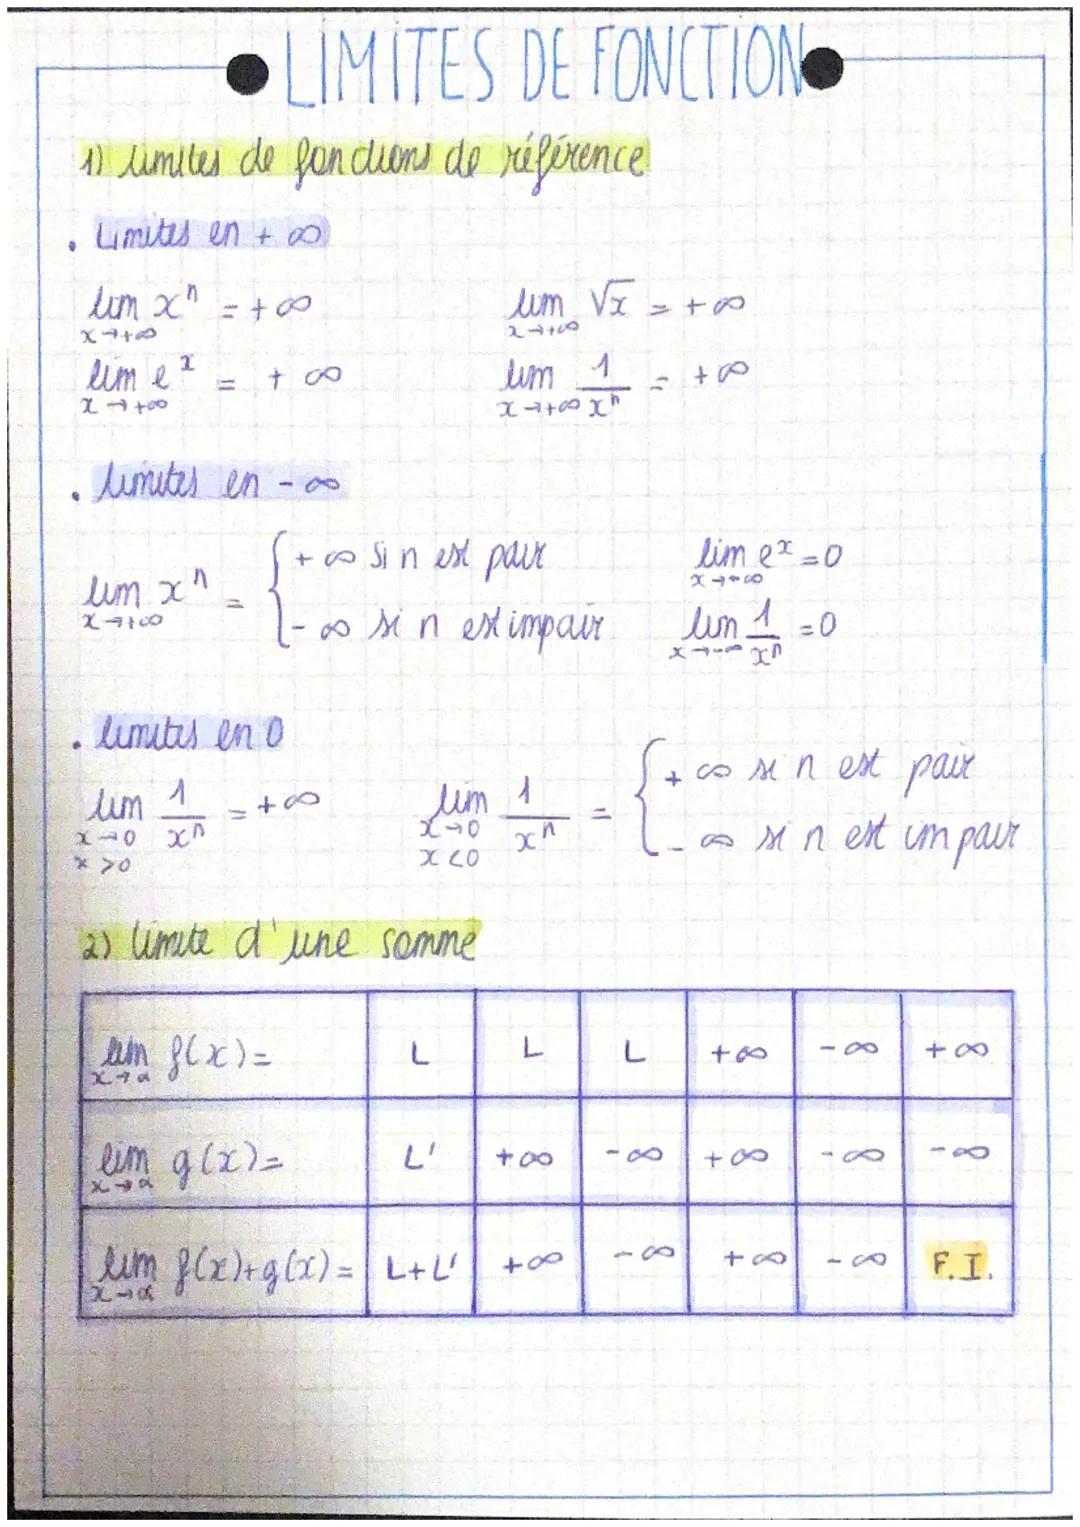 LIMITES DE FONCTION
1) limites de fonctions de référence
• Limites en + ∞
lim x→+∞ xⁿ = +∞    lim x→+∞ √x = +∞
lim x→+∞ eˣ = + ∞    lim x→+∞ 1/xⁿ = +∞
• limites en - ∞
lim x→+∞ xⁿ = { + ∞ si n est pair    lim x→-∞ eˣ = 0
- ∞ si n est impair    lim x→-∞ 1/xⁿ = 0
• limites en 0
lim x→0 x>0 1/xⁿ = +∞    lim x→0 x<0 1/xⁿ = { + ∞ si n est pair
- ∞ si n est impair
2) limite d'une somme
lim x→α f(x)= L L L +∞ -∞ +∞
lim x→α g(x)= L' +∞ -∞ +∞ -∞ -∞
lim x→α f(x)+g(x)= L+L' +∞ -∞ +∞ -∞ F.I.